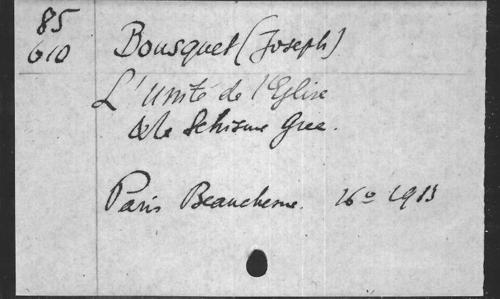 85
610
Bousquet (Joseph)
L'unité de l'Eglise
& le Schisme Grec.
Paris Beauchesne. 16º 1913